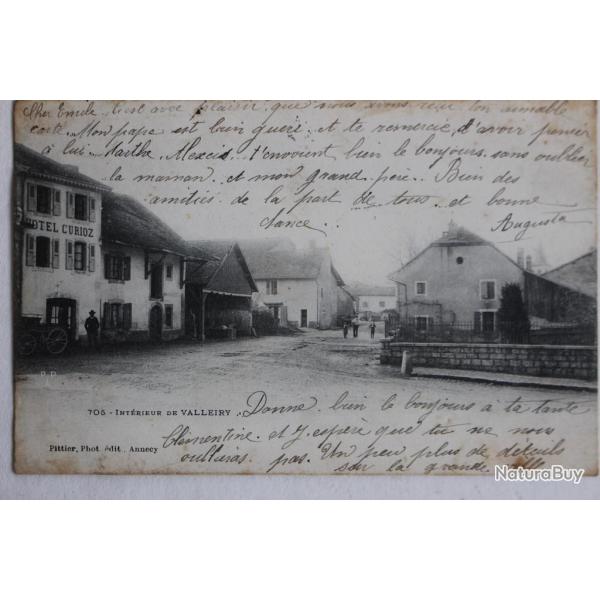 Cher Emile. C'est avec plaisir que nous avons reçu ton aimable
carte. Mon papa est bien guéri et te remercie, d'avoir penser
à lui. Marthe, Alexcis t'envoient bien le bonjours. sans oublier
la maman et mon grand père. Bien des
amitiés de la part de tous. et bonne
chance.
Augusta
HOTEL CURIOZ
705 - INTÉRIEUR DE VALLEIRY
Donne bien le bonjours à ta tante
Clémentine. et J'espère que tu ne nous
oublieras pas. Un peu plus de détails
sur la grande
Pittier, Phot. édit., Annecy
NaturaBuy